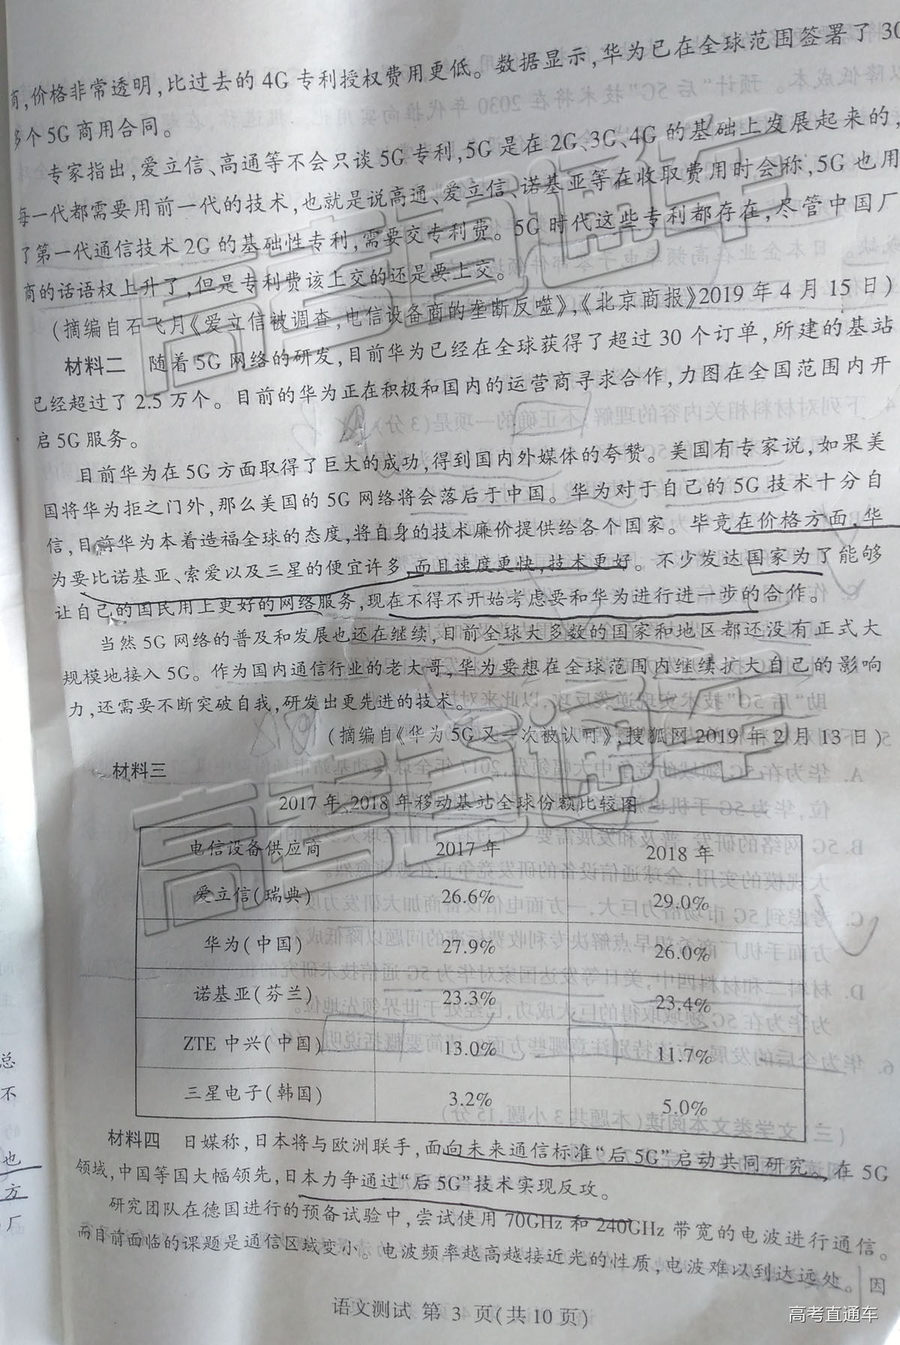 商,价格非常透明,比过去的4G专利授权费用更低。数据显示,华为已在全球范围签署了30
多个5G商用合同。
专家指出,爱立信、高通等不会只谈5G专利,5G是在2G、3G、4G的基础上发展起来的,
每一代都需要用前一代的技术,也就是说高通、爱立信、诺基亚等在收取费用时会称,5G也用
了第一代通信技术2G的基础性专利,需要交专利费。5G时代这些专利都存在,尽管中国厂
商的话语权上升了,但是专利费该上交的还是要上交。
(摘编自石飞月《爱立信被调查,电信设备商的垄断反噬》,《北京商报》2019年4月15日)
材料二 随着5G网络的研发,目前华为已经在全球获得了超过30个订单,所建的基站
已经超过了2.5万个。目前的华为正在积极和国内的运营商寻求合作,力图在全国范围内开
启5G服务。
目前华为在5G方面取得了巨大的成功,得到国内外媒体的夸赞。美国有专家说,如果美
国将华为拒之门外,那么美国的5G网络将会落后于中国。华为对于自己的5G技术十分自
信,目前华为本着造福全球的态度,将自身的技术廉价提供给各个国家。毕竟在价格方面,华
为要比诺基亚、索爱以及三星的便宜许多,而且速度更快,技术更好。不少发达国家为了能够
让自己的国民用上更好的网络服务,现在不得不开始考虑要和华为进行进一步的合作。
当然5G网络的普及和发展也还在继续,目前全球大多数的国家和地区都还没有正式大
规模地接入5G。作为国内通信行业的老大哥,华为要想在全球范围内继续扩大自己的影响
力,还需要不断突破自我,研发出更先进的技术。
(摘编自《华为5G又一次被认可》,搜狐网2019年2月13日)
材料三
2017年、2018年移动基站全球份额比较图
电信设备供应商 2017年 2018年
爱立信(瑞典) 26.6% 29.0%
华为(中国) 27.9% 26.0%
诺基亚(芬兰) 23.3% 23.4%
ZTE中兴(中国) 13.0% 11.7%
三星电子(韩国) 3.2% 5.0%
材料四 日媒称,日本将与欧洲联手,面向未来通信标准“后5G”启动共同研究。在5G
领域,中国等国大幅领先,日本力争通过“后5G”技术实现反攻。
研究团队在德国进行的预备试验中,尝试使用70GHz和240GHz带宽的电波进行通信。
而目前面临的课题是通信区域变小。电波频率越高越接近光的性质,电波难以到达远处。因
语文测试 第3页(共10页)
总
不
也
方
厂
高考直通车
高考直通车
高考直通车